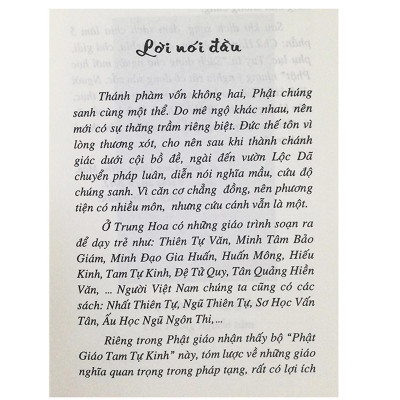 Lời nói đầu
Thánh phàm vốn không hai, Phật chúng
sanh cùng một thể. Do mê ngộ khác nhau, nên
mới có sự thăng trầm riêng biệt. Đức thế tôn vì
lòng thương xót, cho nên sau khi thành chánh
giác dưới cội bồ đề, ngài đến vườn Lộc Dã
chuyển pháp luân, diễn nói nghĩa mầu, cứu độ
chúng sanh. Vì căn cơ chẳng đồng, nên phương
tiện có nhiều môn, nhưng cứu cánh vẫn là một.
Ở Trung Hoa có những giáo trình soạn ra
để dạy trẻ như: Thiên Tự Văn, Minh Tâm Bảo
Giám, Minh Đạo Gia Huấn, Huấn Mông, Hiếu
Kinh, Tam Tự Kinh, Đệ Tử Quy, Tân Quảng Hiền
Văn, ... Người Việt Nam chúng ta cũng có các
sách: Nhất Thiên Tự, Ngũ Thiên Tự, Sơ Học Vấn
Tân, Ấu Học Ngũ Ngôn Thi,...
Riêng trong Phật giáo nhận thấy bộ "Phật
Giáo Tam Tự Kinh" này, tóm lược về những giáo
nghĩa quan trọng trong pháp tạng, rất có lợi ích